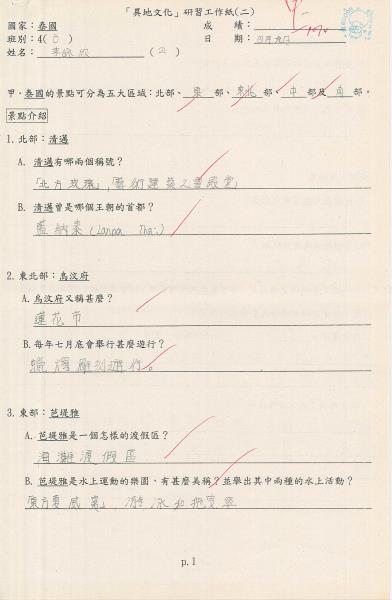 「異地文化」研習工作紙(二)
國家：泰國 成　績：
班別：4( ) 日　期：
姓名： ( 2 )
甲．泰國的景點可分為五大區域：北部、東部、東北部、中部及南部。
景點介紹
1. 北部：清邁
A. 清邁有哪兩個稱號？
「北方玫瑰」,「藝術建築之寶殿堂」
B. 清邁曾是哪個王朝的首都？
藍納泰 (Lanna Thai)
2. 東北部：烏汶府
A. 烏汶府又稱甚麼？
蓮花市
B. 每年七月底會舉行甚麼遊行？
蠟燭雕刻遊行。
3. 東部：芭堤雅
A. 芭堤雅是一個怎樣的渡假區？
海灘渡假區
B. 芭堤雅是水上運動的樂園，有甚麼美稱？並舉出其中兩種的水上活動？
東方夏威夷」 游泳和
p.1